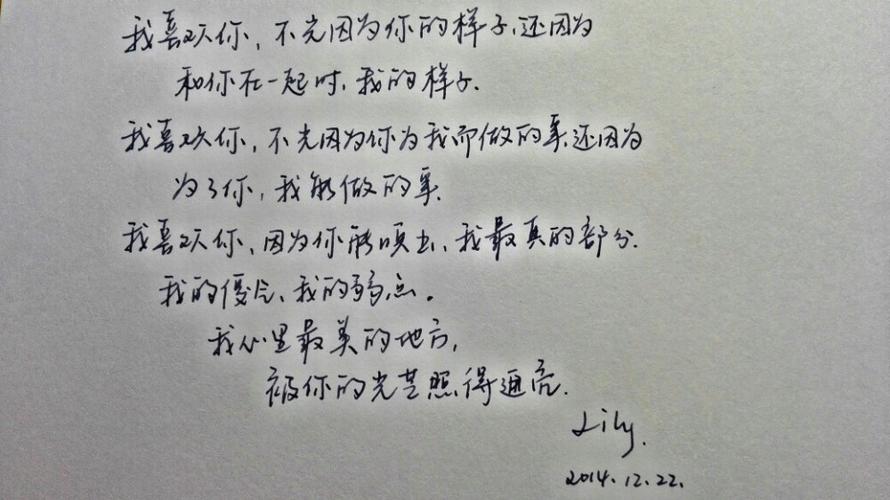 我喜欢你，不光因为你的样子，还因为
和你在一起时，我的样子.
我喜欢你，不光因为你为我而做的事，还因为
为了你，我能做的事.
我喜欢你，因为你能唤出，我最真的部分.
我的傻气、我的弱点。
我心里最美的地方，
被你的光芒照得通亮.
Lily.
2014.12.22.